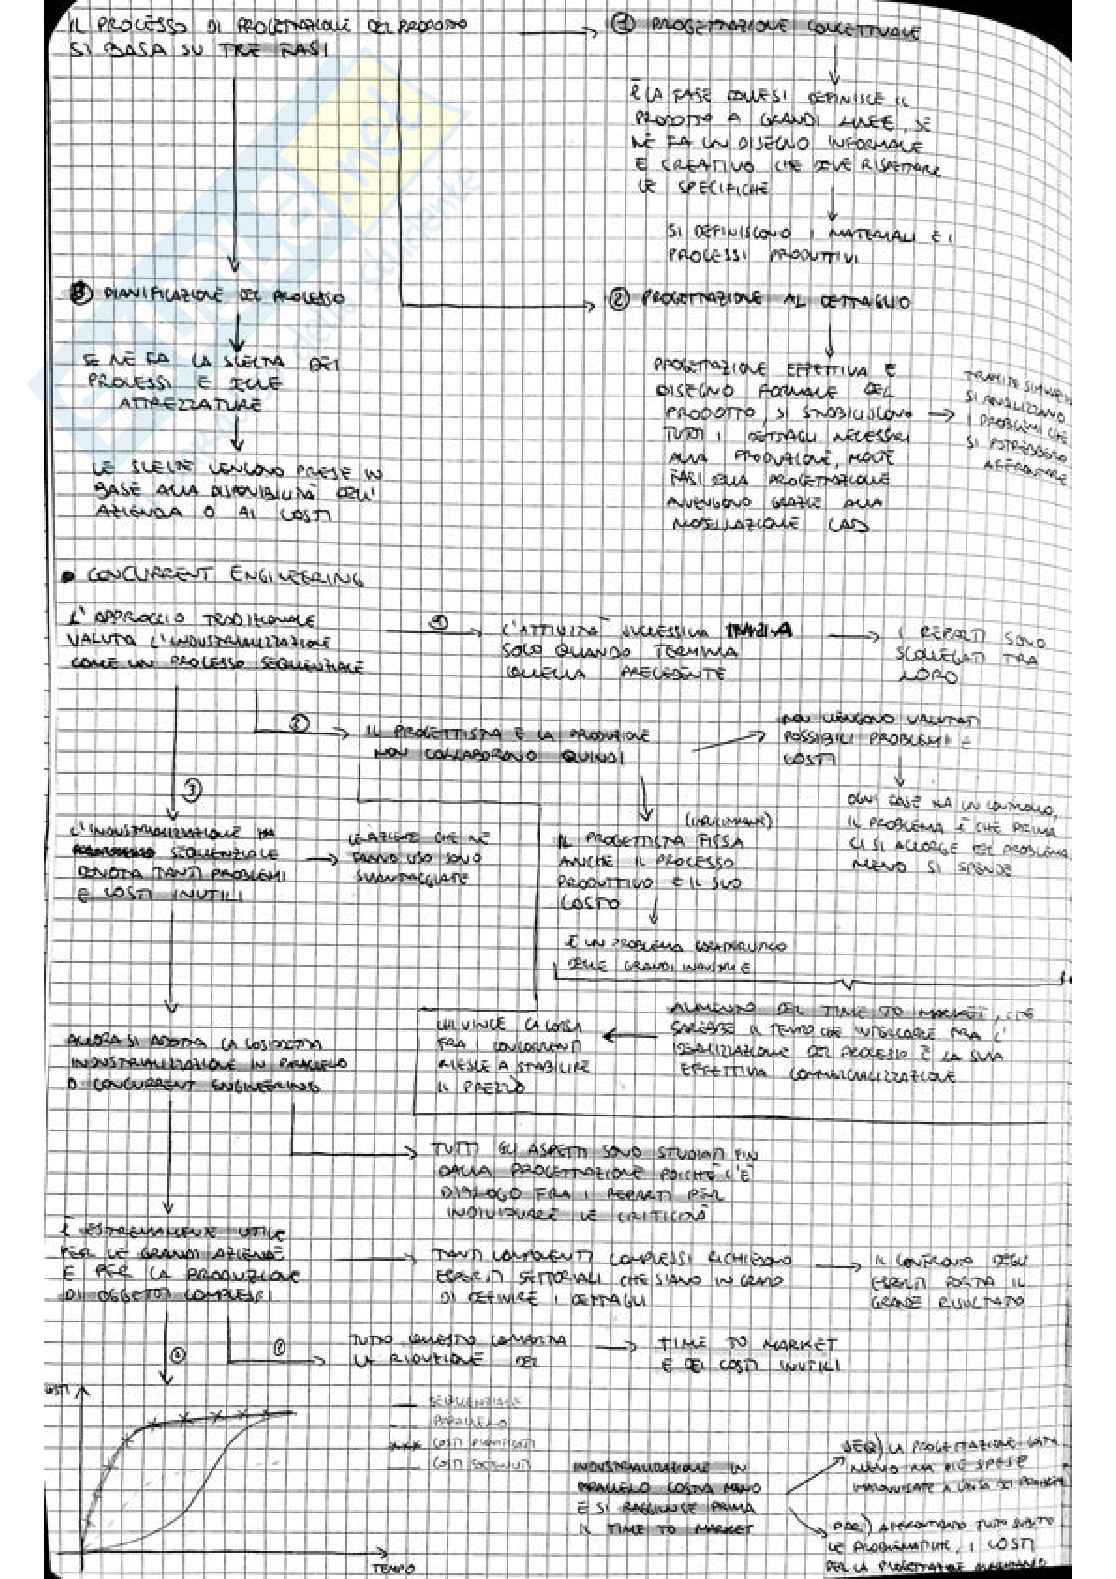 IL PROCESSO DI PROGETTAZIONE DEL PRODOTTO
SI BASA SU TRE FASI
① PROGETTAZIONE CONCETTUALE
È LA FASE DOVE SI DEFINISCE IL
PRODOTTO A GRANDI LINEE, SE
NE FA UN DISEGNO INFORMALE
E CREATIVO CHE DEVE RISPETTARE
LE SPECIFICHE
SI DEFINISCONO I MATERIALI E I
PROCESSI PRODUTTIVI
③ PIANIFICAZIONE DEL PROCESSO
SE NE FA LA SCELTA DEI
PROCESSI E DELLE
ATTREZZATURE
LE SCELTE VENGONO PRESE IN
BASE ALLA DISPONIBILITÀ DELL'
AZIENDA O AI COSTI
② PROGETTAZIONE AL DETTAGLIO
PROGETTAZIONE EFFETTIVA E
DISEGNO FORMALE DEL
PRODOTTO, SI STABILISCONO
TUTTI I DETTAGLI NECESSARI
ALLA PRODUZIONE, MOLTE
FASI DELLA PROGETTAZIONE
AVVENGONO GRAZIE ALLA
MODELLAZIONE CAD
TRAMITE
SI ANALIZZANO
I PROBLEMI CHE
SI POTREBBERO
AFFRONTARE
• CONCURRENT ENGINEERING
L'APPROCCIO TRADIZIONALE
VALUTA L'INDUSTRIALIZZAZIONE
COME UN PROCESSO SEQUENZIALE
① L'ATTIVITÀ SUCCESSIVA INIZIA
SOLO QUANDO TERMINA
QUELLA PRECEDENTE
I REPARTI SONO
SCOLLEGATI TRA
LORO
② IL PROGETTISTA E LA PRODUZIONE
NON COLLABORANO QUINDI
NON VENGONO VALUTATI
POSSIBILI PROBLEMI E
COSTI
OGNI FASE HA UN CONTROLLO,
IL PROBLEMA È CHE PRIMA
CI SI ACCORGE DEL PROBLEMA
MENO SI SPENDE
IL PROGETTISTA FISSA
ANCHE IL PROCESSO
PRODUTTIVO E IL SUO
COSTO
È UN PROBLEMA CARATTERISTICO
DELLE GRANDI INDUSTRIE
③
L'INDUSTRIALIZZAZIONE HA
SEQUENZIALE
DENOTA TANTI PROBLEMI
E COSTI INUTILI
LE AZIENDE CHE NE
FANNO USO SONO
SVANTAGGIATE
AUMENTO DEL TIME TO MARKET, CHE
SAREBBE IL TEMPO CHE INTERCORRE FRA L'
IDEALIZZAZIONE DEL PROCESSO E LA SUA
EFFETTIVA COMMERCIALIZZAZIONE
CHI VINCE LA CORSA
FRA I CONCORRENTI
RIESCE A STABILIRE
IL PREZZO
ALLORA SI ADOTTA LA COSIDDETTA
INDUSTRIALIZZAZIONE IN PARALLELO
O CONCURRENT ENGINEERING
TUTTI GLI ASPETTI SONO STUDIATI FIN
DALLA PROGETTAZIONE POICHÈ C'È
DIALOGO FRA I REPARTI PER
INDIVIDUARE LE CRITICITÀ
È ESTREMAMENTE UTILE
PER LE GRANDI AZIENDE
E PER LA PRODUZIONE
DI OGGETTI COMPLESSI
TANTI COMPONENTI COMPLESSI RICHIEDONO
ESPERTI SETTORIALI CHE SIANO IN GRADO
DI DEFINIRE I DETTAGLI
IL CONFRONTO DEGLI
ESPERTI PORTA IL
GRANDE RISULTATO
① TUTTO QUESTO COMPORTA
LA RIDUZIONE DEL
TIME TO MARKET
E DEI COSTI INUTILI
②
COSTI
TEMPO
SEQUENZIALE
PARALLELO
COSTI PIANIFICATI
COSTI SOSTENUTI
INDUSTRIALIZZAZIONE IN
PARALLELO COSTA MENO
E SI RAGGIUNGE PRIMA
IL TIME TO MARKET
SEQ) LA PROGETTAZIONE COSTA
MENO MA PIÙ SPESE
IMPROVVISATE A CAUSA DEI PROBLEMI
PAR) AFFRONTANDO TUTTO SUBITO
LE PROBLEMATICHE, I COSTI
PER LA PROGETTAZIONE AUMENTANO